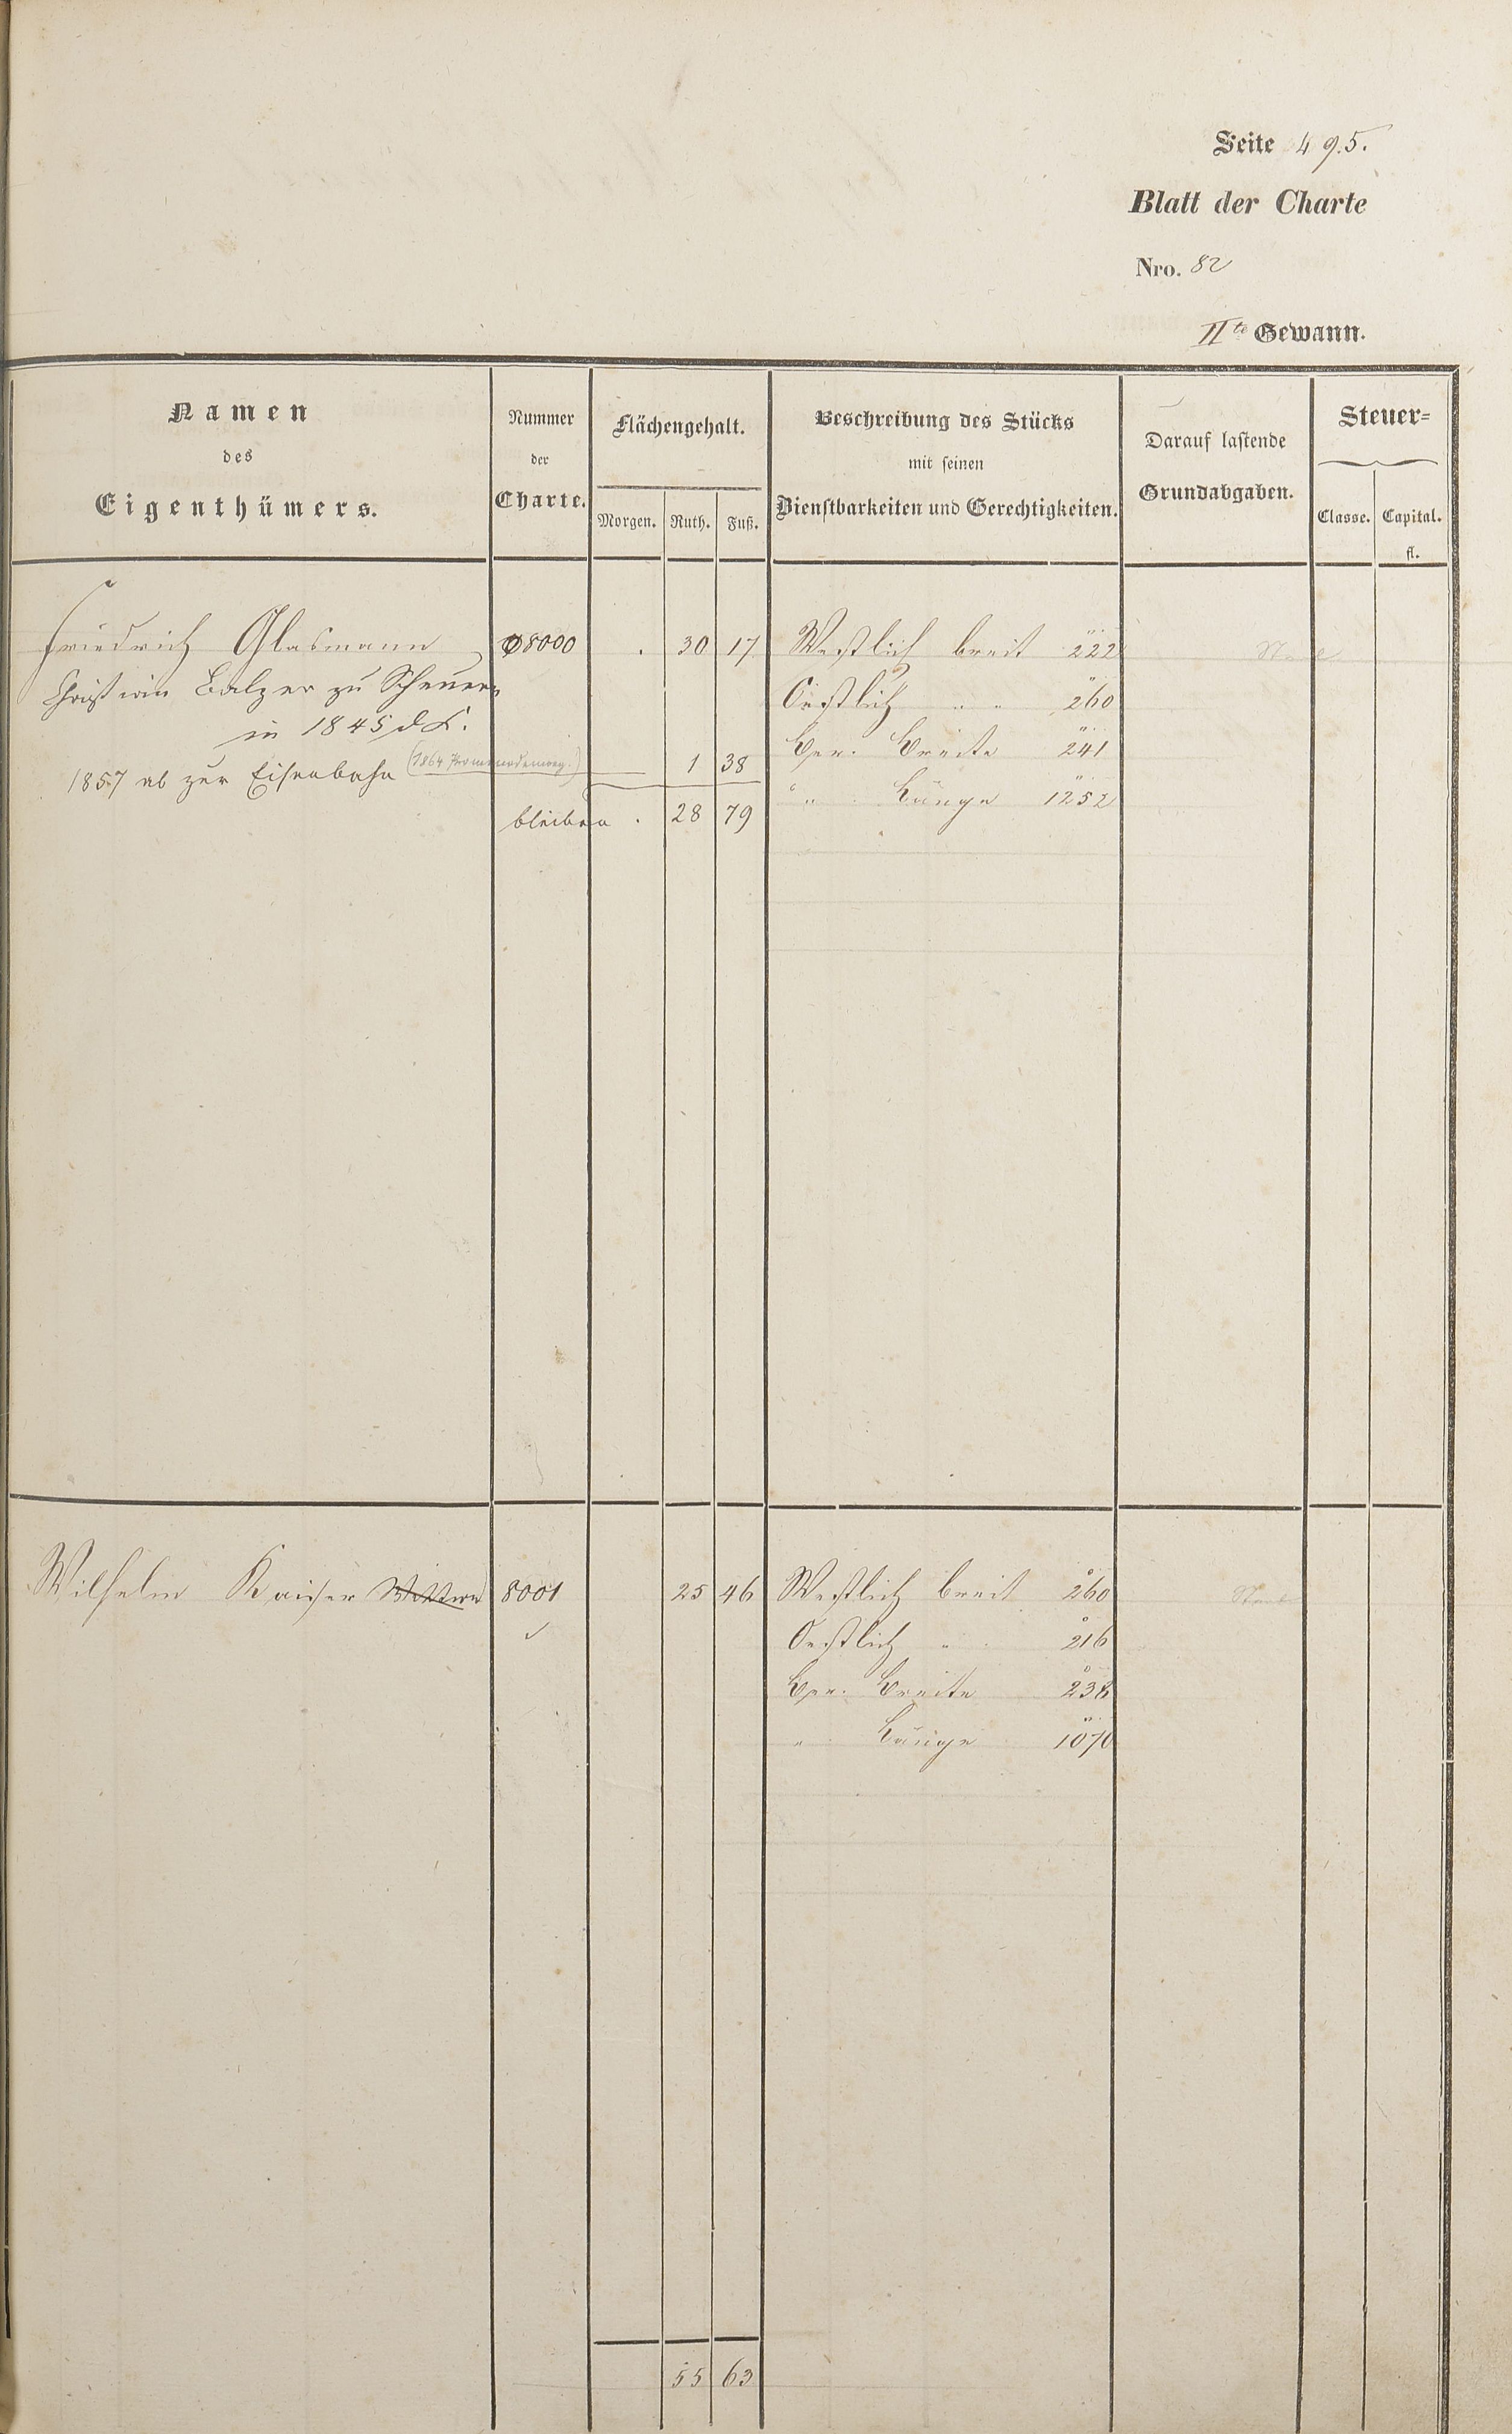 Seite 495.
Blatt der Charte
Nro. 82
IIte Gewann.
Namen
des
Eigenthümers.
Nummer
der
Charte.
Flächengehalt.
Morgen. Ruth. Fuß.
Beschreibung des Stücks
mit seinen
Dienstbarkeiten und Gerechtigkeiten.
Darauf lastende
Grundabgaben.
Steuer=
Classe. Capital.
fl.
Friedrich Glasmann 8000 . 30 17 Westlich breit 222
Christian Balzer zu Scheuern Oestlich " " 260
in 1845 d.K. Ger. Breite 241
1857 ab zur Eisenbahn (1864 Promenadenweg.) 1 38
" " Länge 1252
bleiben . 28 79
Wilhelm Kaiser Wittwe 8001 25 46 Westlich breit 260
Oestlich " 216
Ger. Breite 238
" Länge 1070
55 63